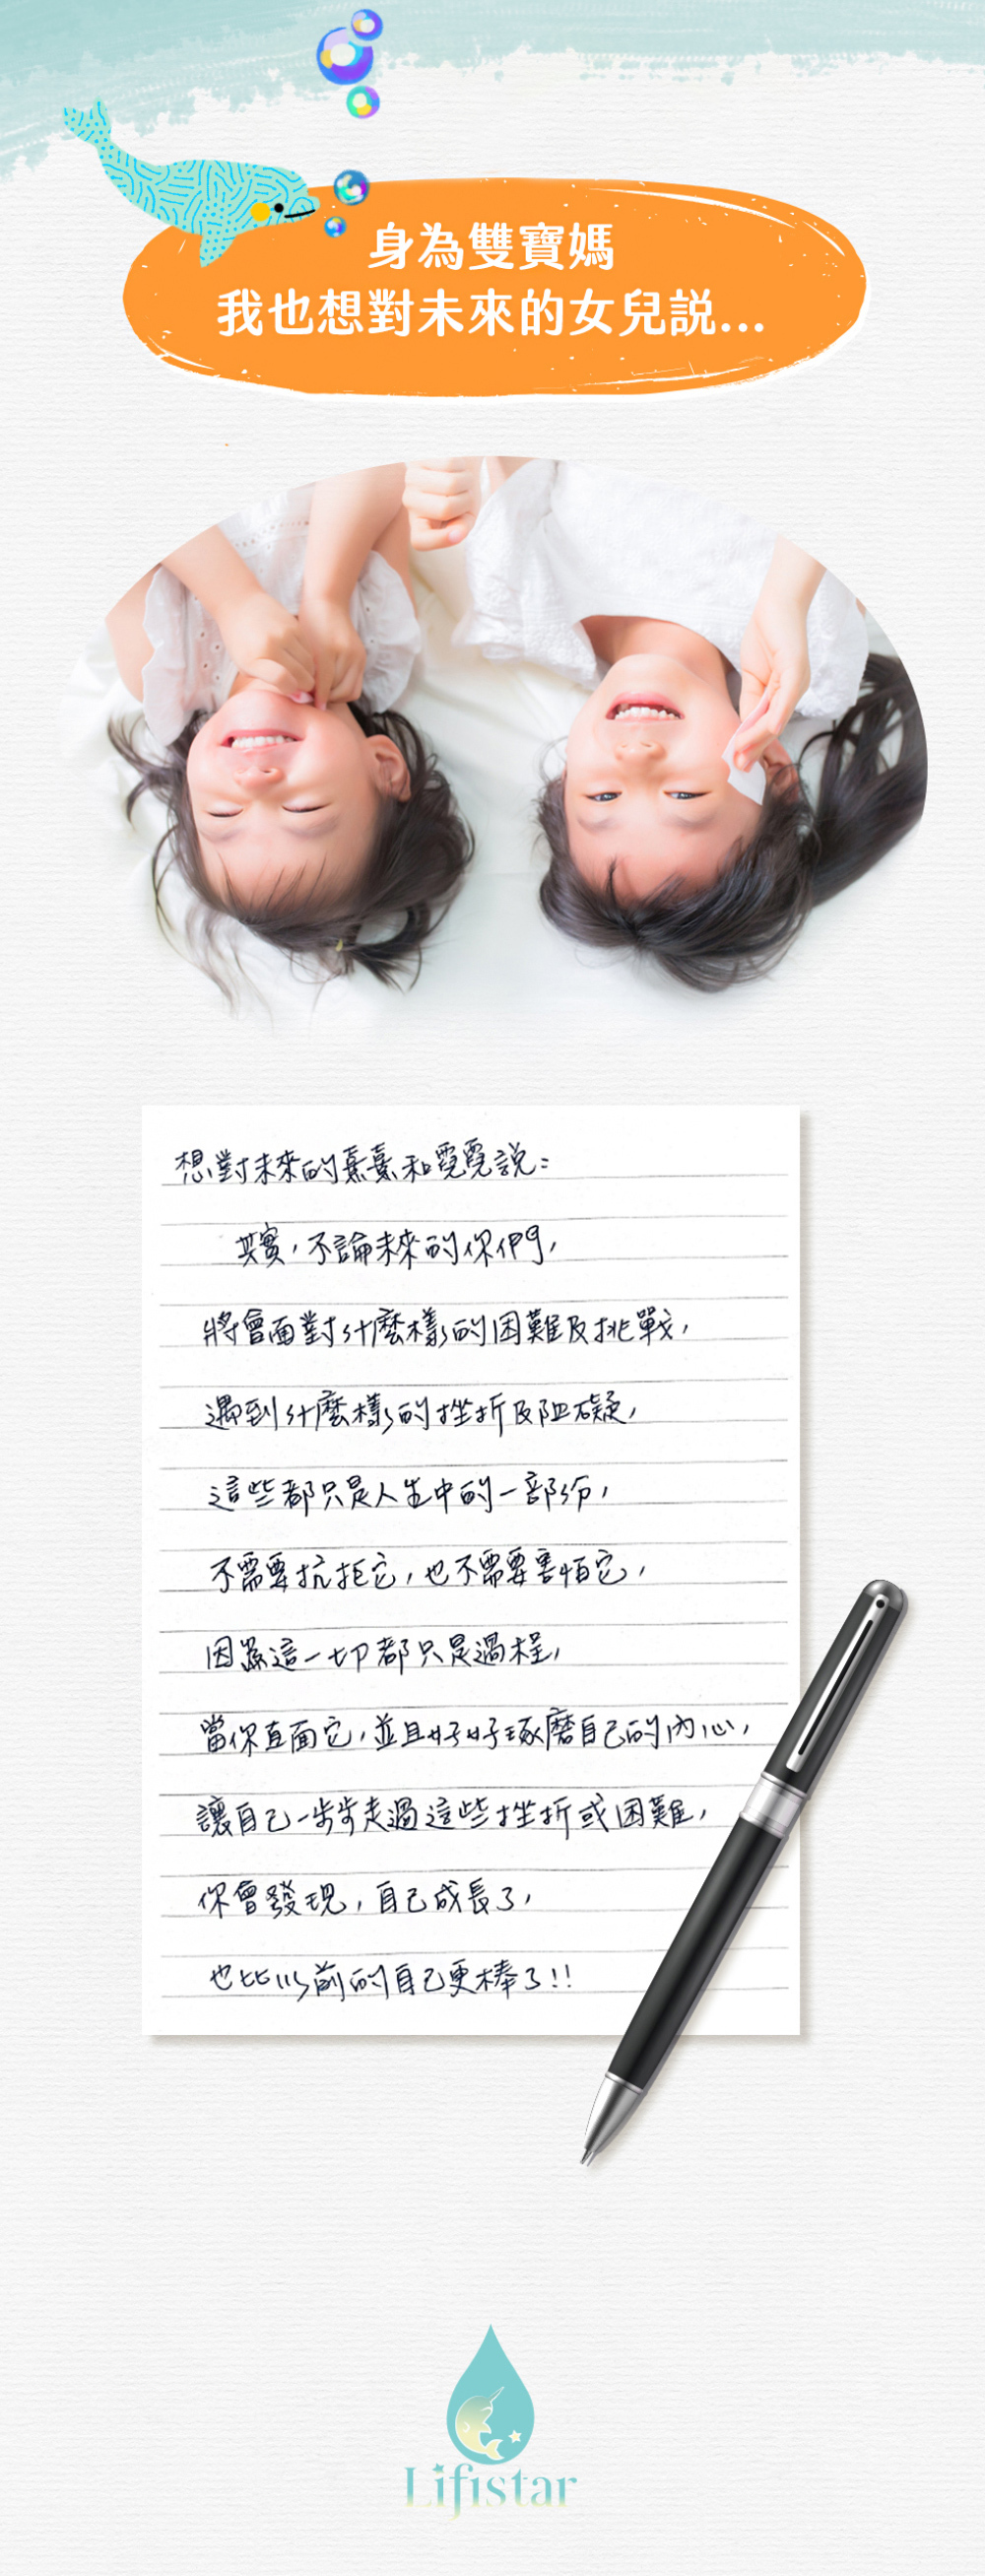 身為雙寶媽
我也想對未來的女兒說...
想對未來的熹熹和霓霓說：
其實，不論未來的你們，
將會面對什麼樣的困難及挑戰，
遇到什麼樣的挫折及阻礙，
這些都只是人生中的一部份，
不需要抗拒它，也不需要害怕它，
因為這一切都只是過程，
當你直面它，並且好好琢磨自己的內心，
讓自己一步步走過這些挫折或困難，
你會發現，自己成長了，
也比以前的自己更棒了!!
Lifistar